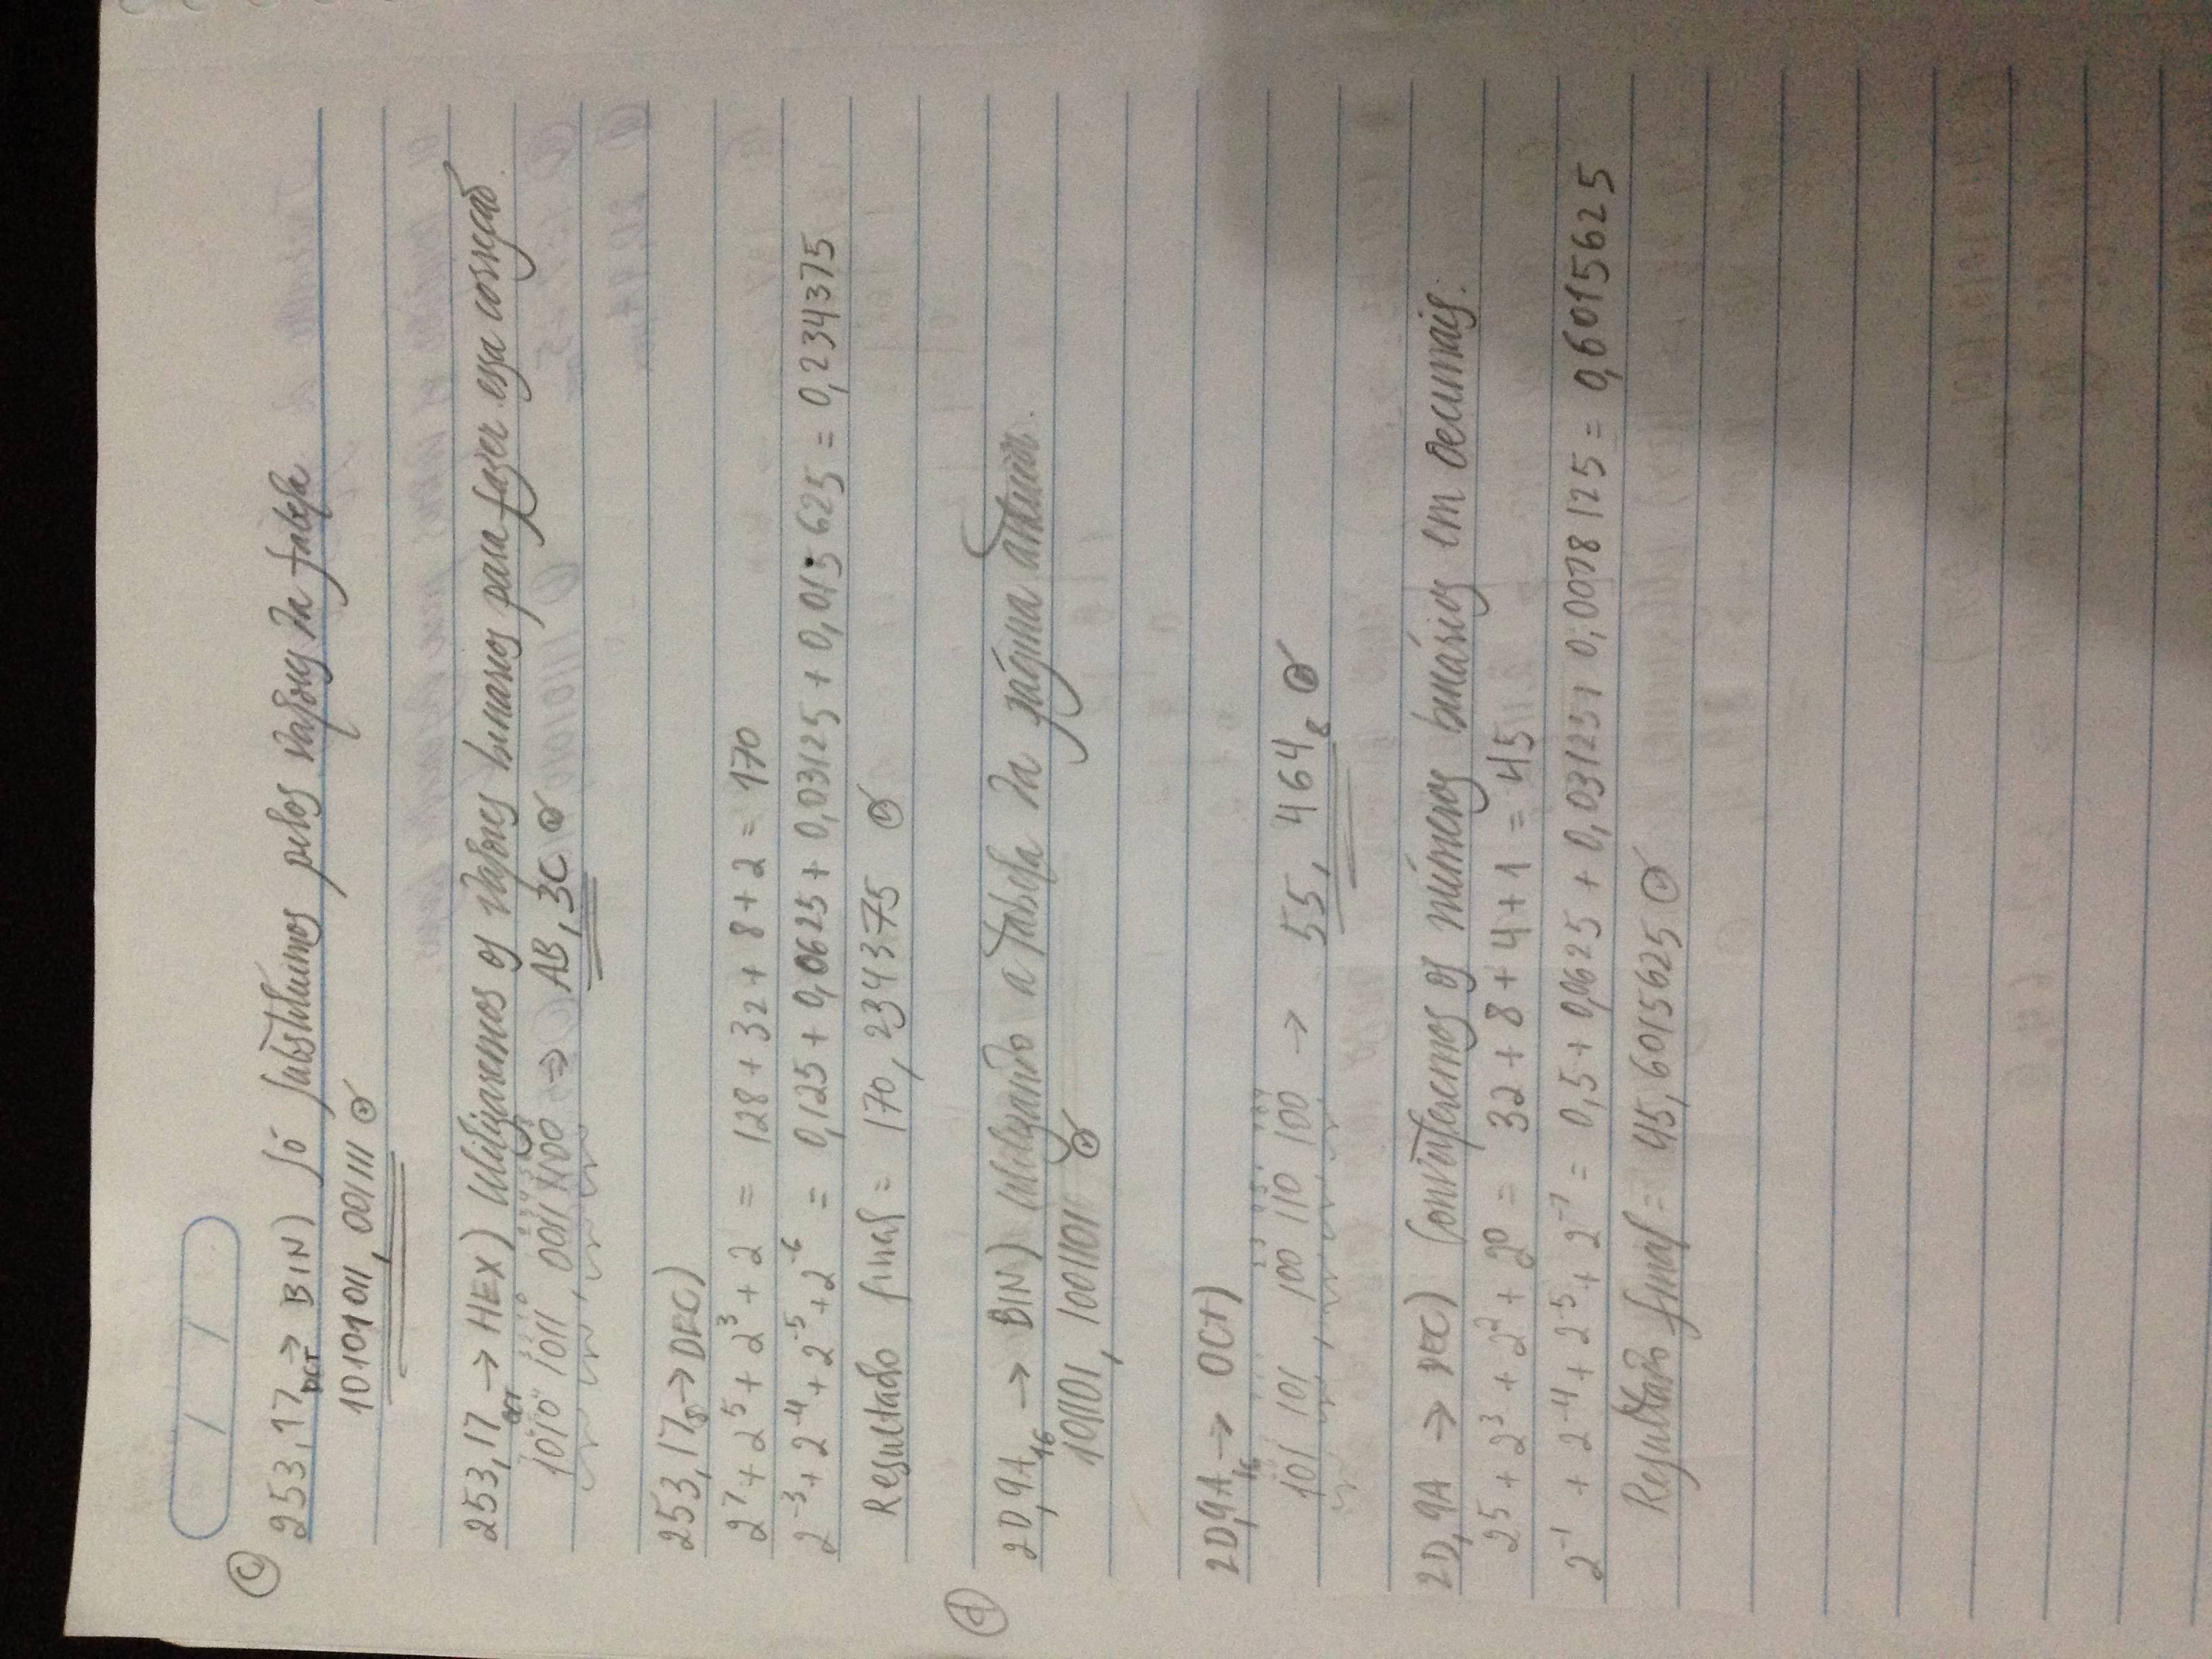 / /
C 253,17 OCT → BIN) só substituímos pelos valores da tabela
10101011,001111
253,17 OCT → HEX) Utilizaremos os valores binarios para fazer essa coversão.
1010 1011 , 0011 1100 ⇒ AB,3C
253,17₈ → DEC)
2⁷ + 2⁵ + 2³ + 2 = 128 + 32 + 8 + 2 = 170
2⁻³ + 2⁻⁴ + 2⁻⁵ + 2⁻⁶ = 0,125 + 0,0625 + 0,03125 + 0,015625 = 0,234375
Resultado final = 170,234375
d 2D,9A₁₆ → BIN) utilizando a tabela da página anterior.
101101,1001101
2D,9A₁₆ → OCT)
101 101 , 100 110 100 → 55,464₈
2D,9A → DEC) Converteremos os números binários em decimais.
2⁵ + 2³ + 2² + 2⁰ = 32 + 8 + 4 + 1 = 45
2⁻¹ + 2⁻⁴ + 2⁻⁵ + 2⁻⁷ = 0,5 + 0,0625 + 0,03125 + 0,0078125 = 0,6015625
Resultado final = 45,6015625